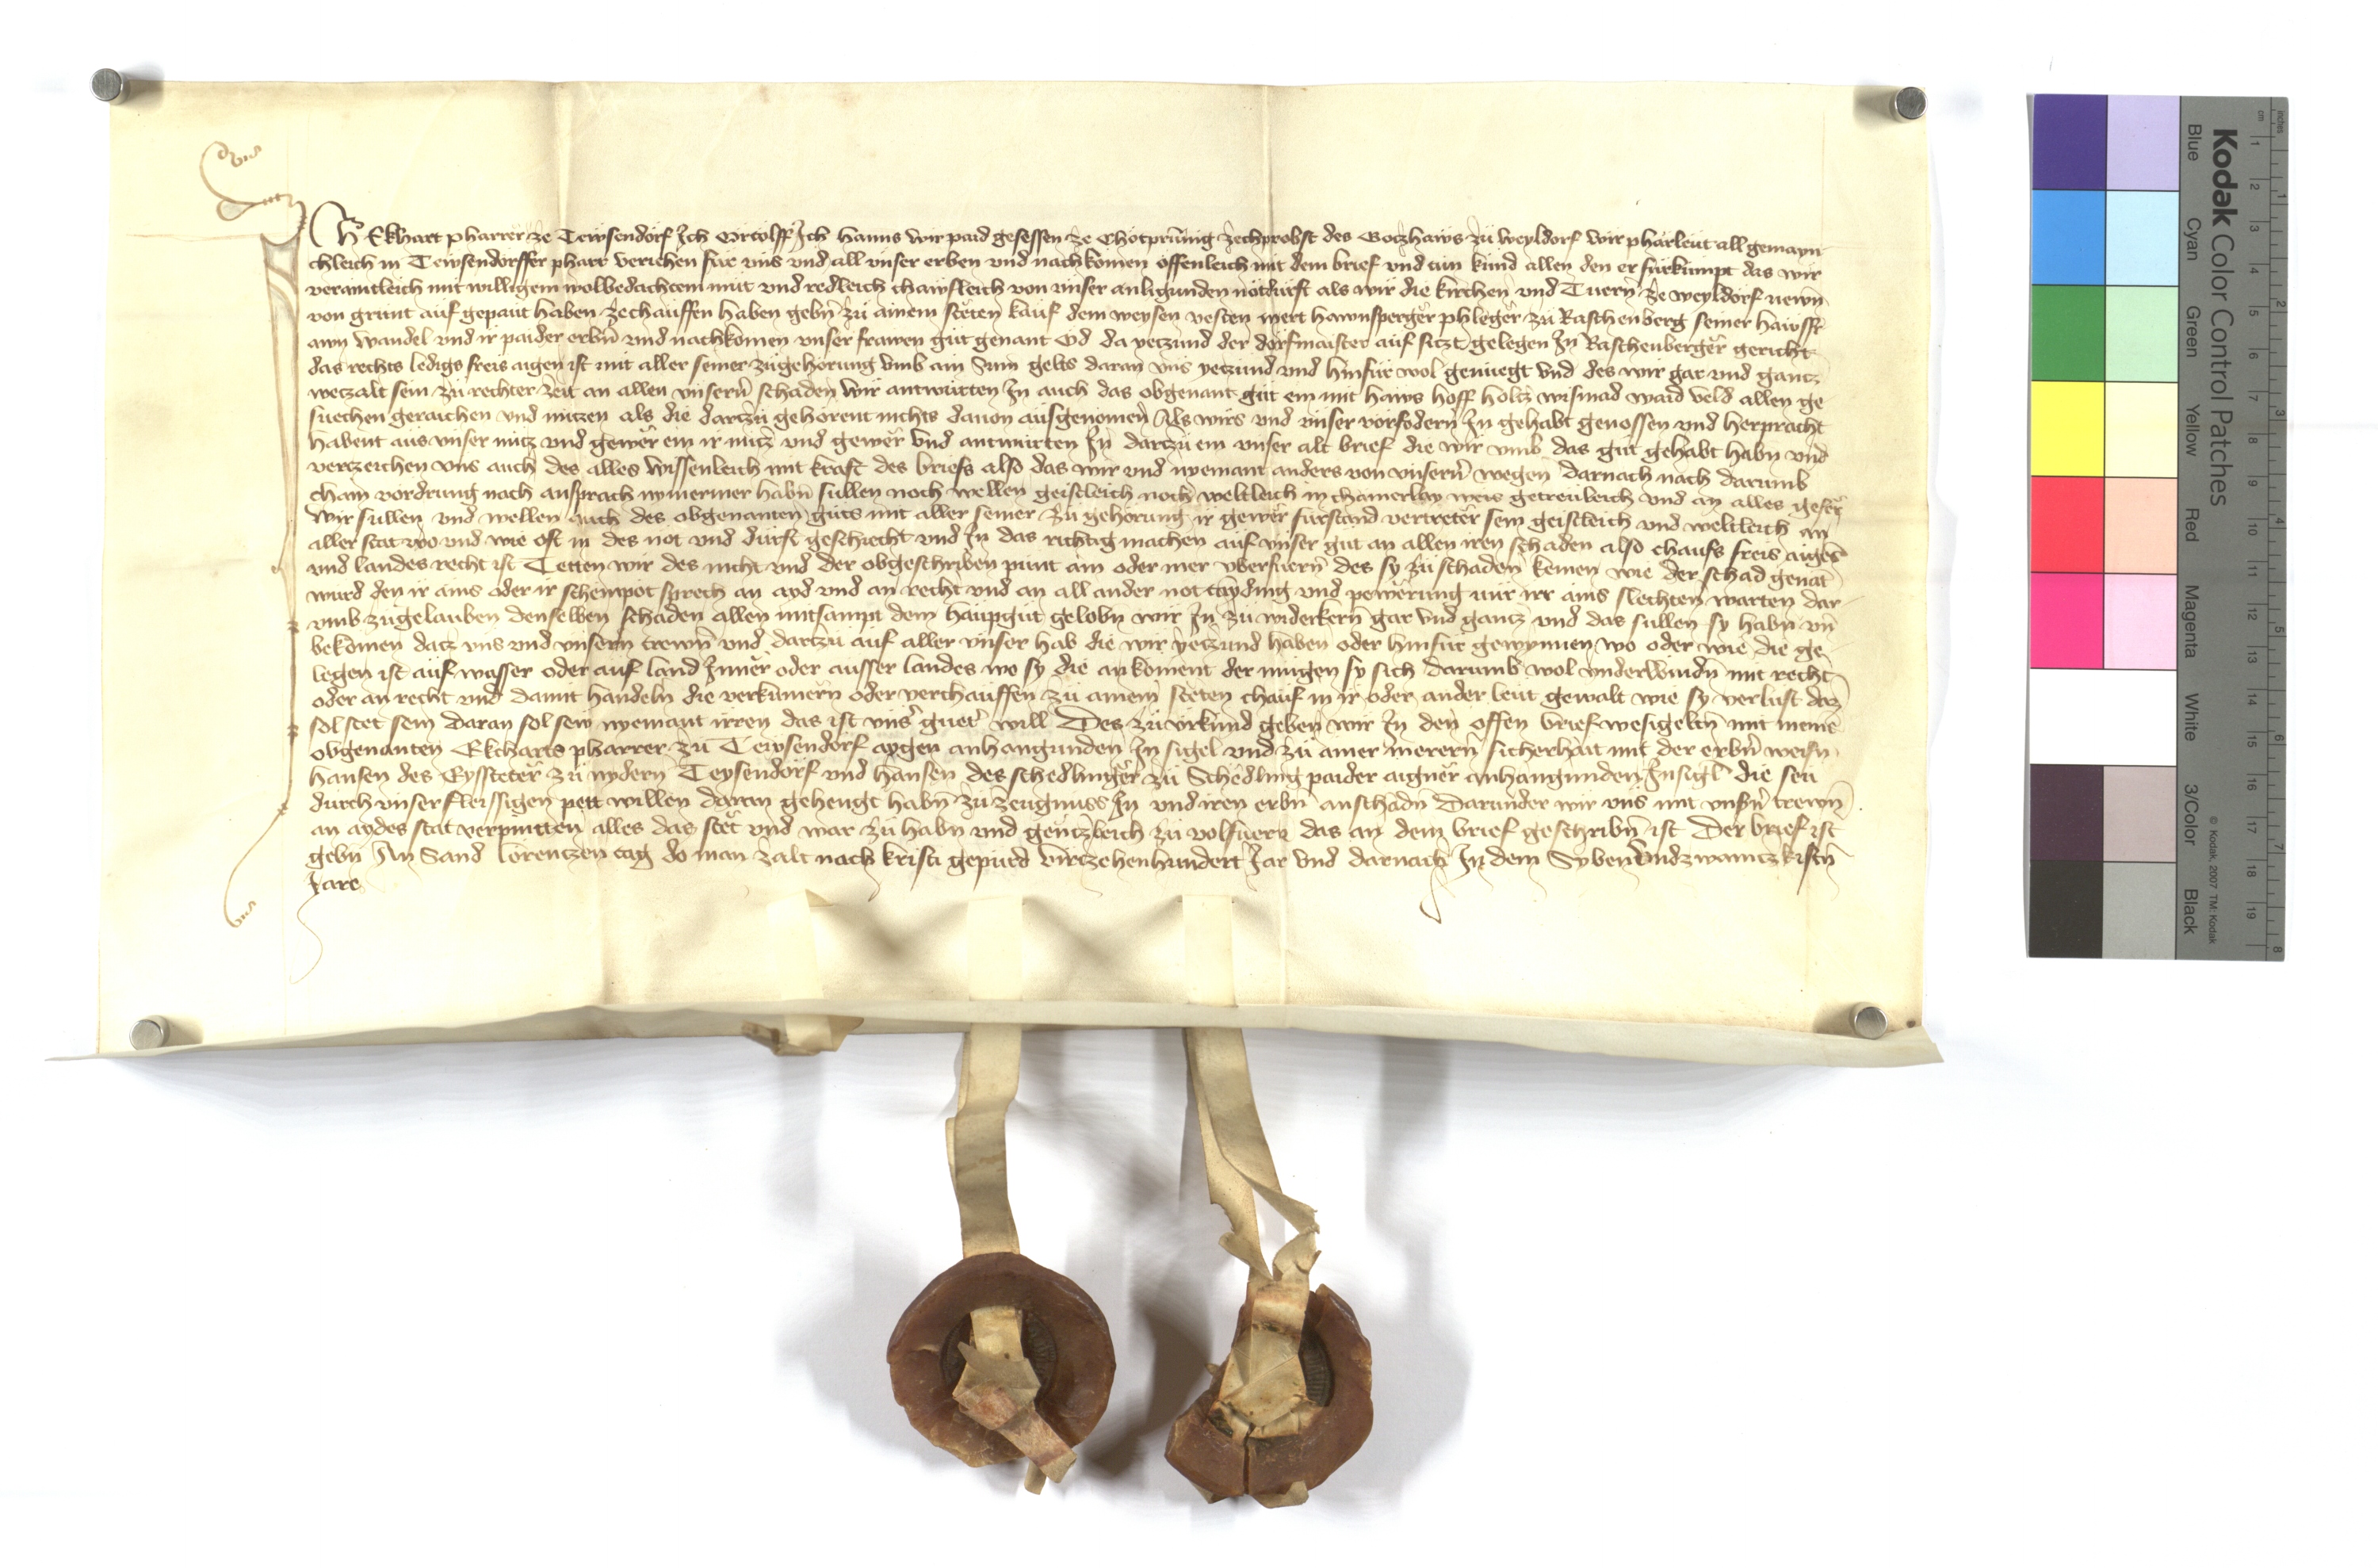 Ich Ekhart pharrer ze Tewsendorf Ich Ortolff Ich Hanns wir paid gesessen ze Chotprunig zechprobst des Gotzhaws zu weyldorf wir pharleut all gemayn
chleich in Tewsendorffer pharr veriehen fur uns und all unser erben und nachkomen offenleich mit dem brief und tun kund allen den er furkumpt das wir
veraintleich mit willigem wolbedachtem mut und redleich chawfleich von unser anligunden notdurft als wir die kirchen und Tuern ze weyldorf newn
von grunt auf gepaut haben ze chauffen haben gebn zu ainem steten kauf dem weysen vesten hawnsperger phleger zu Raschenberg seiner hawsfr
awn wandel und ir paider erbn und nachkomen unser frawen gut genant Od da yetzund der dorfmaister auf sitzt gelegen In Raschenberger gericht
das rechts ledigs freis aigen ist mit aller seiner zugehorung umb ain Sum gelts daran uns yetzund und hinfur wol genuegt und des wir gar und gantz
wetzalt sein zu rechter zeit an allen unsern schaden wir antwurten In auch das obgenant gut ein mit haws hoff holtz wismad waid veld allen ge
suechen geraichen und nutzen als die dartzu gehorent nichts davon ausgenomen Als wirs und unser vorfodern In gehabt genossen und herpracht
habent aus unser nutz und gewer ein ir nutz und gewer und antwurten In dartzu ein unser alt brief die wir umb das gut gehabt habn und
vertzeichen uns auch des alles wissenleich mit kraft des briefs also das wir und nyemant anders von unsern wegen darnach nach darumb
chain vordrung nach ansprach nymermer habn sullen noch wellen geistleich noch weltleich in chainerlay weis getreuleich und an alles gefer
wir sullen und wellen auch des obgenanten guts mit aller seiner zu gehorung ir gewer furstand vertreter sein geistleich und weltleich an
aller stat wo und wie oft in des not und durft geschiecht und In das richtig machen auf unser gut an allen iren schaden also chaufs freis aigens
und landes recht ist Tetten wir des nicht und der obgeschriben punt ain oder mer uberfuern des sy zu schaden kemen wie der schad genat
wurd den ir ains oder ir scheinpot sprech an ayd und an recht und an all ander not tayding und pewerung nur irr ains slechten warten dar
umb zugelauben denselben schaden allen mitsampt dem haupgut gelobn wir In zu widerkern gar und gantz und das sullen sy habn un
bekomen datz uns und unsern trewn und dartzu auf aller unser hab die wir yetzund haben oder hinfur gewynnen wo oder wie die ge
legen ist auf wasser oder auf land Inner oder ausser landes wo sy die ankoment der mugen sy sich darumb wol underwindn mit recht
oder an recht und damit handeln die verkumern oder verchauffen zu ainem steten chauf in ir oder ander leut gewalt wie sy verlust daz
sol stet sein daran sol sew nyemant irren das ist uns guet will Des zu urkund geben wir In den offen brief wesigelten mit meine
obgenanten Ekcharts pharrer zu Tewsendorf aygen anhangunden In sigel und zu ainer merern sicherhait mit der erbn weisn
hansen des Eyssteter zu nydern Teysendorf und hansen des schedlinger zu Schedling paider aigner anhangunden Insigl die sew
durch unser fleissigen pett willen daran gehengt habn zu zeugnuss In und iren erbn anschadn Darunder wir uns mit unsern trewn
an aydes stat verpintten alles das stet und war zu habn und gentzleich zu volfuern das an dem brief geschribn ist Der brief ist
gebn An Sand Lorentzen tag do man zalt nach kristi gepurd virtzehenhundert Jar und darnach In dem Syben undzwaintzkistn
Jare
Kodak Color Control Patches
Blue Cyan Green Yellow Red Magenta White 3/Color Black
© Kodak, 2007 TM: Kodak
inches 1 2 3 4 5 6 7 8
cm 1 2 3 4 5 6 7 8 9 10 11 12 13 14 15 16 17 18 19